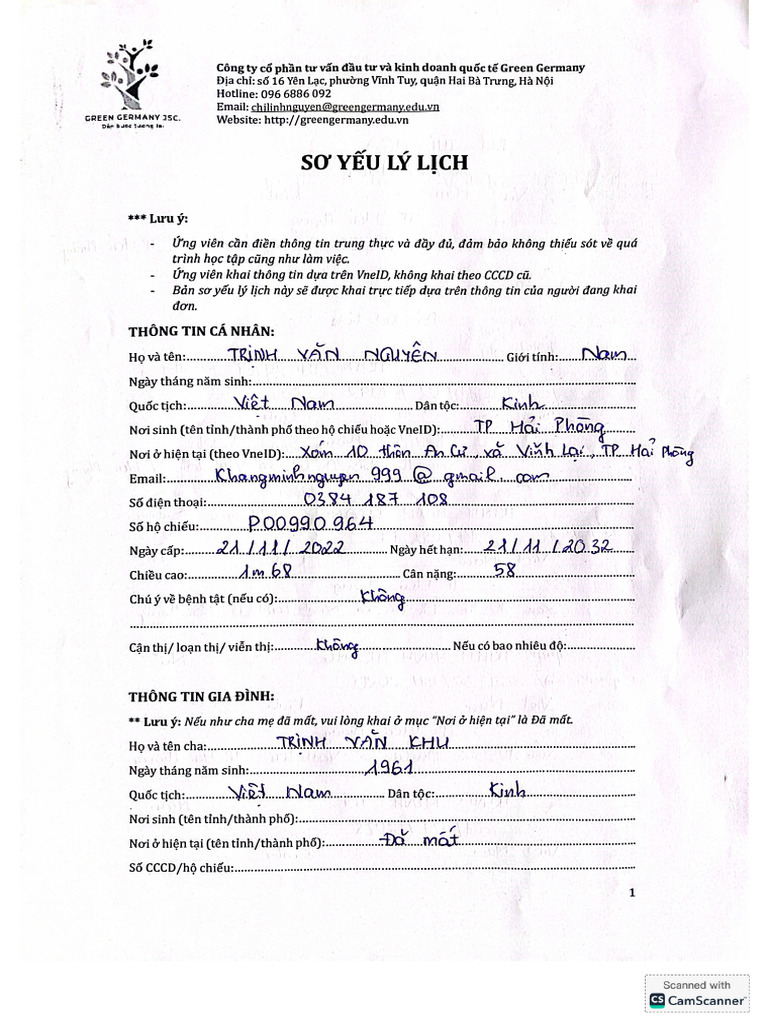 GREEN GERMANY JSC.
Dẫn bước tương lai
Công ty cổ phần tư vấn đầu tư và kinh doanh quốc tế Green Germany
Địa chỉ: số 16 Yên Lạc, phường Vĩnh Tuy, quận Hai Bà Trưng, Hà Nội
Hotline: 096 6886 092
Email: chilinhnguyen@greengermany.edu.vn
Website: http://greengermany.edu.vn
SƠ YẾU LÝ LỊCH
*** Lưu ý:
- Ứng viên cần điền thông tin trung thực và đầy đủ, đảm bảo không thiếu sót về quá
trình học tập cũng như làm việc.
- Ứng viên khai thông tin dựa trên VneID, không khai theo CCCD cũ.
- Bản sơ yếu lý lịch này sẽ được khai trực tiếp dựa trên thông tin của người đang khai
đơn.
THÔNG TIN CÁ NHÂN:
Họ và tên: TRỊNH VĂN NGUYÊN Giới tính: Nam
Ngày tháng năm sinh:
Quốc tịch: Việt Nam Dân tộc: Kinh
Nơi sinh (tên tỉnh/thành phố theo hộ chiếu hoặc VneID): TP Hải Phòng
Nơi ở hiện tại (theo VneID): Xóm 10 thôn An Cư, xã Vĩnh Lại, TP Hải Phòng
Email: Khangminhnguyen 999 @ gmail. com
Số điện thoại: 0384 187 108
Số hộ chiếu: P00990964
Ngày cấp: 21/11/2022 Ngày hết hạn: 21/11/2032
Chiều cao: 1m68 Cân nặng: 58
Chú ý về bệnh tật (nếu có): Không
Cận thị/ loạn thị/ viễn thị: Không Nếu có bao nhiêu độ:
THÔNG TIN GIA ĐÌNH:
** Lưu ý: Nếu như cha mẹ đã mất, vui lòng khai ở mục "Nơi ở hiện tại" là Đã mất.
Họ và tên cha: TRỊNH VĂN KHU
Ngày tháng năm sinh: 1961
Quốc tịch: Việt Nam Dân tộc: Kinh
Nơi sinh (tên tỉnh/thành phố):
Nơi ở hiện tại (tên tỉnh/thành phố): Đã mất
Số CCCD/hộ chiếu:
1
Scanned with
CS CamScanner